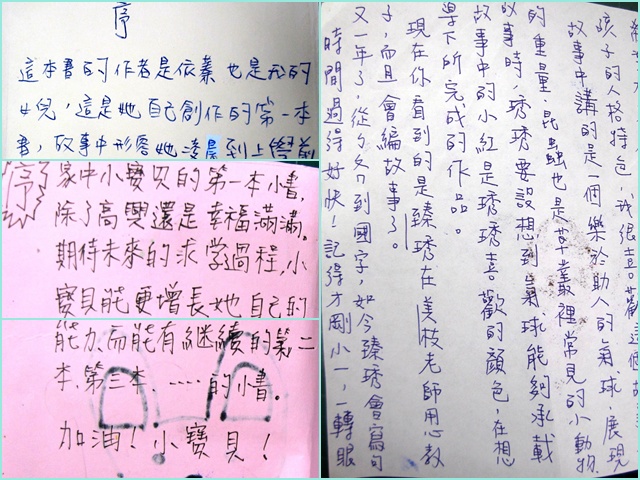 序
這本書的作者是依蓁也是我的
女兒,這是她自己創作的第一本
書,故事中形容她凌晨到上學前
序
家中小寶貝的第一本小書,
除了高興還是幸福滿滿。
期待未來的求學過程,小
寶貝能更增長她自己的
能力,而能有繼續的第二
本、第三本、……的小書。
加油!小寶貝!
時間過得好快!記得才剛小一,一轉眼
又一年了,從ㄅㄆㄇ到國字,如今臻琇會寫句
子,而且會編故事了。
現在你看到的是臻琇在美枝老師用心教
導下所完成的作品。
故事中的小紅是琇琇喜歡的顏色,在想
故事時,琇琇要設想到氣球能夠承載
的重量,昆蟲也是草叢裡常見的小動物.
故事中講的是一個樂於助人的氣球,展現
孩子的人格特色,我很喜歡這個故